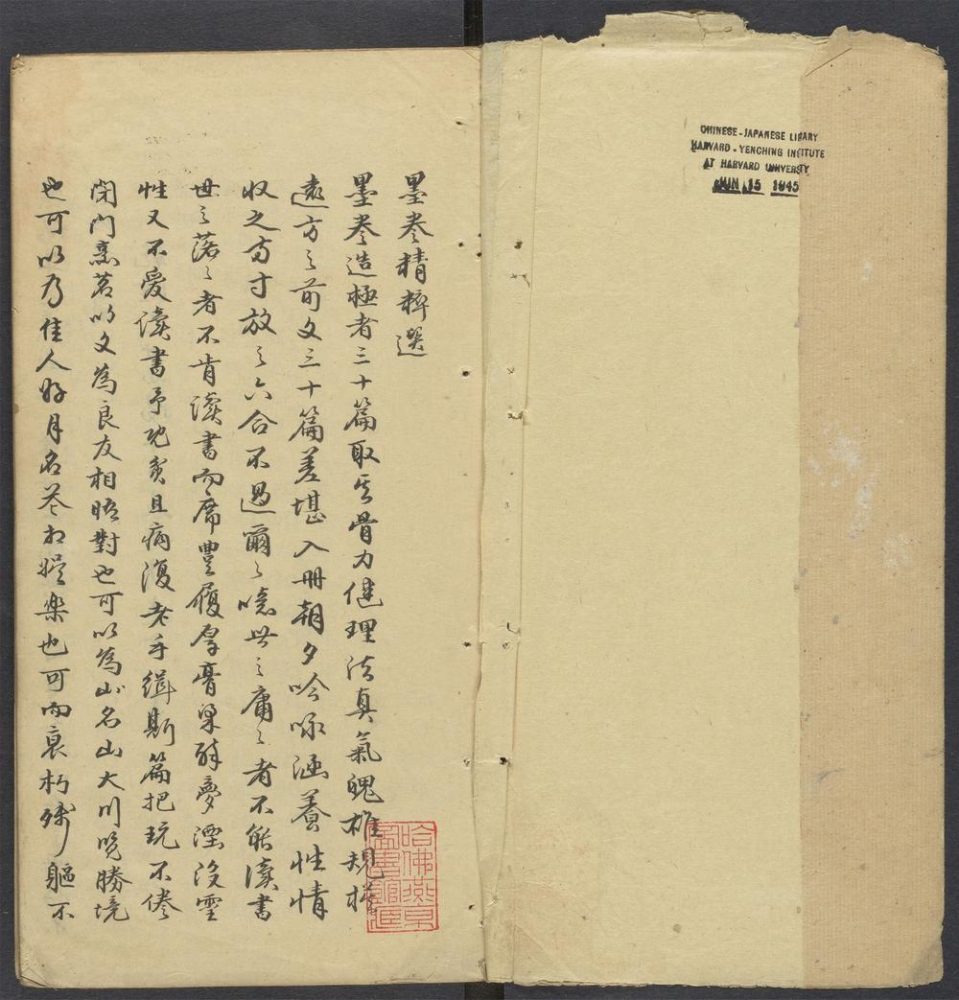 CHINESE-JAPANESE LIBRARY
HARVARD-YENCHING INSTITUTE
AT HARVARD UNIVERSITY
JUN 15 1945
墨卷精粹選
墨卷造極者三十篇取其骨力健理法真氣魄雄規模
遠方之前文三十篇差堪入冊朝夕吟咏涵養性情
收之方寸放之六合不過爾爾噫世之庸々者不能讀書
世之落々者不肯讀書而席豐履厚膏粱醉夢湮沒靈
性又不愛讀書予既貧且病復老手緝斯篇把玩不倦
閉门烹茗以文為良友相晤對也可以為名山大川晚勝境
也可以为佳人好月名花相娛樂也可而衰朽殘軀不
哈佛燕京
圖書館